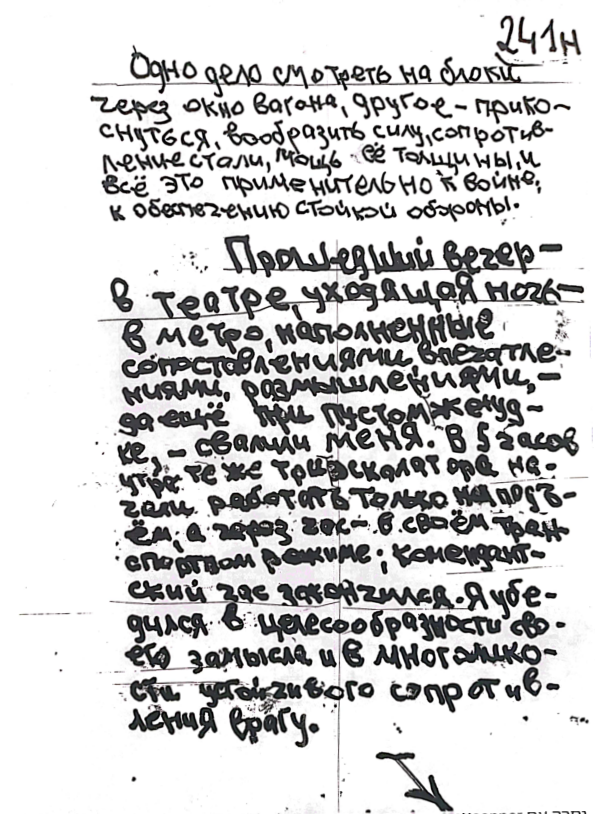 241н
Одно дело смотреть на блоки
через окно вагона, другое - прико-
снуться, вообразить силу, сопротив-
ление стали, мощь её толщины, и
всё это применительно к войне,
к обеспечению стойкой обороны.
Прошедший вечер -
в театре, уходящая ночь -
в метро, наполненные
сопоставлениями, впечатле-
ниями, размышлениями, -
да ещё при пустом желуд-
ке, - свалили меня. В 5 часов
утра те же три эскалатора на-
чали работать только на подъ-
ём, а через час - в своём тран-
спортном режиме; комендант-
ский час закончился. Я убе-
дился в целесообразности сво-
его замысла и в многоликo-
сти устойчивого сопротив-
ления врагу.